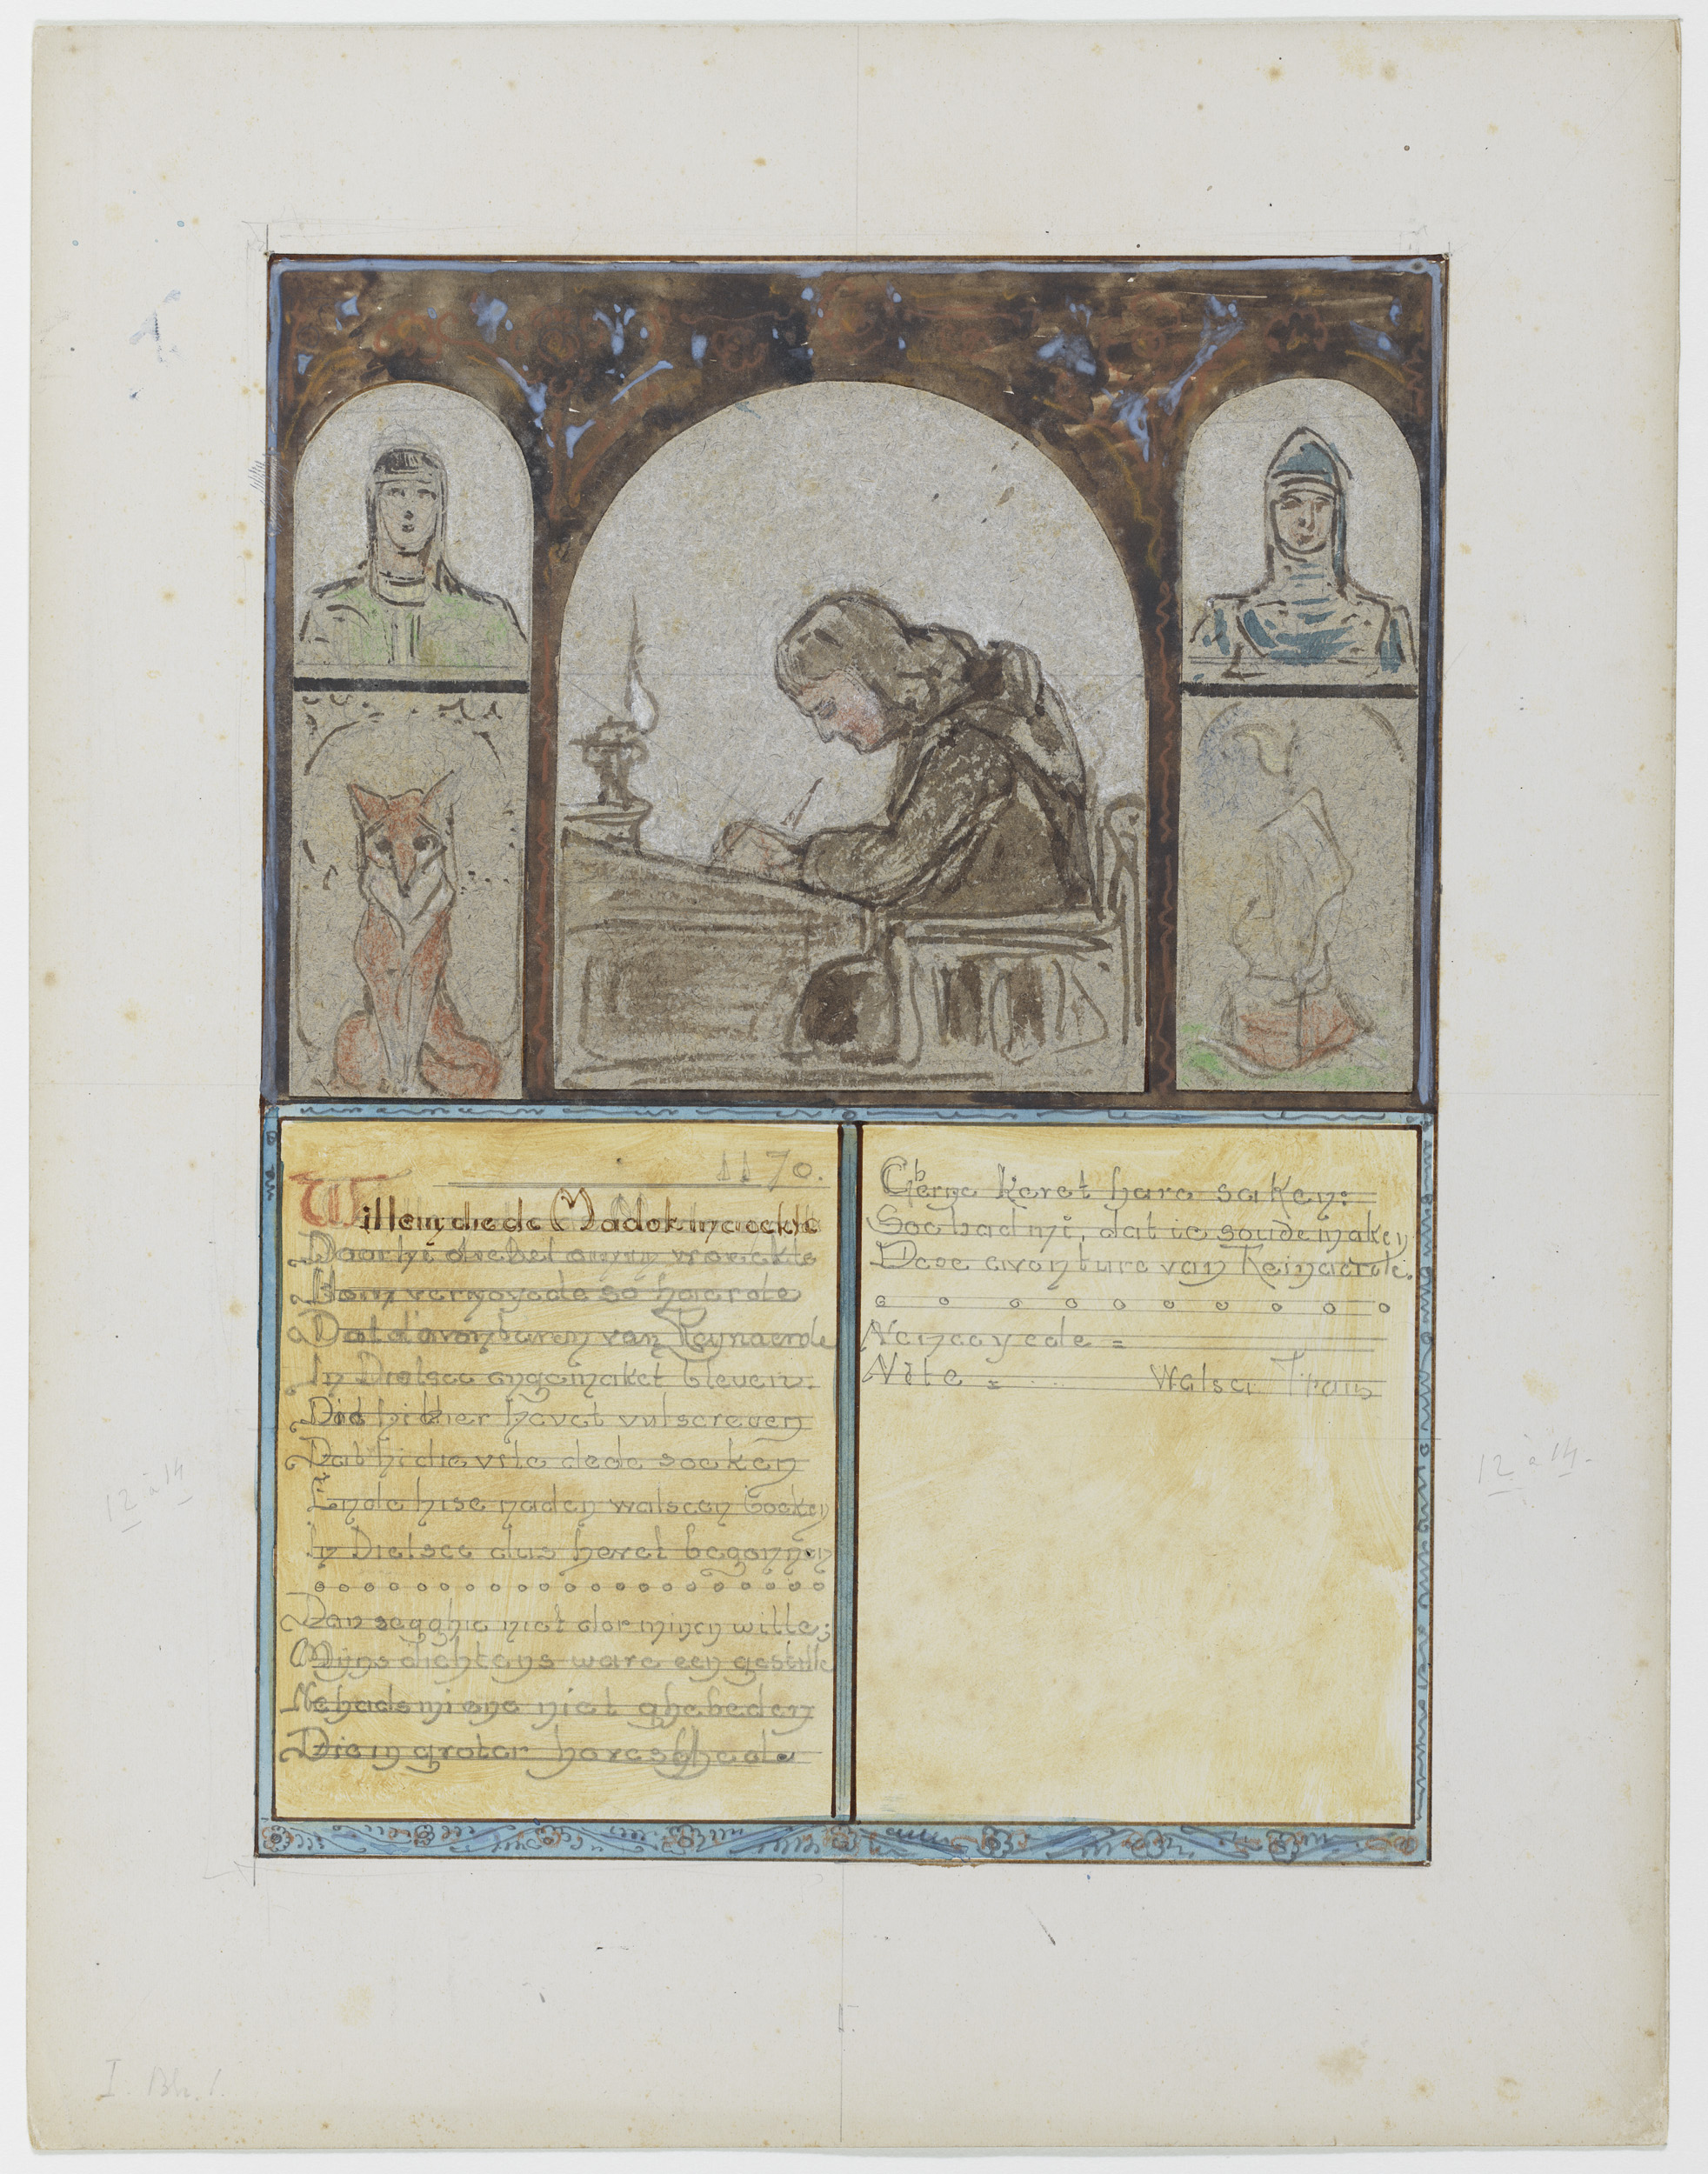 1170.
Willem die de Madok maeckte
Daer hi dicke omme waeckte
Hem vernoyede so haerde
Dat d'avonturen van Reynaerde
In Dietsce ongemaket bleven:
Die hier hevet vulscreven
Dat hi die vite dede soeken
Ende hise na den walscen boeken
In Dietsce dus hevet begonnen
Dan segghic niet dor minen wille;
Mijns dichtens ware een gestille
Ne hads mi ene niet ghebeden
Die in groter hoveschede
Gherne keret hare saken:
Soe bad mi, dat ic soude maken
Dese avonture van Reinaerde.
Vite = Walsc
12 à 14
12 à 14.